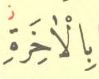 بِالْاٰخِرَةِ